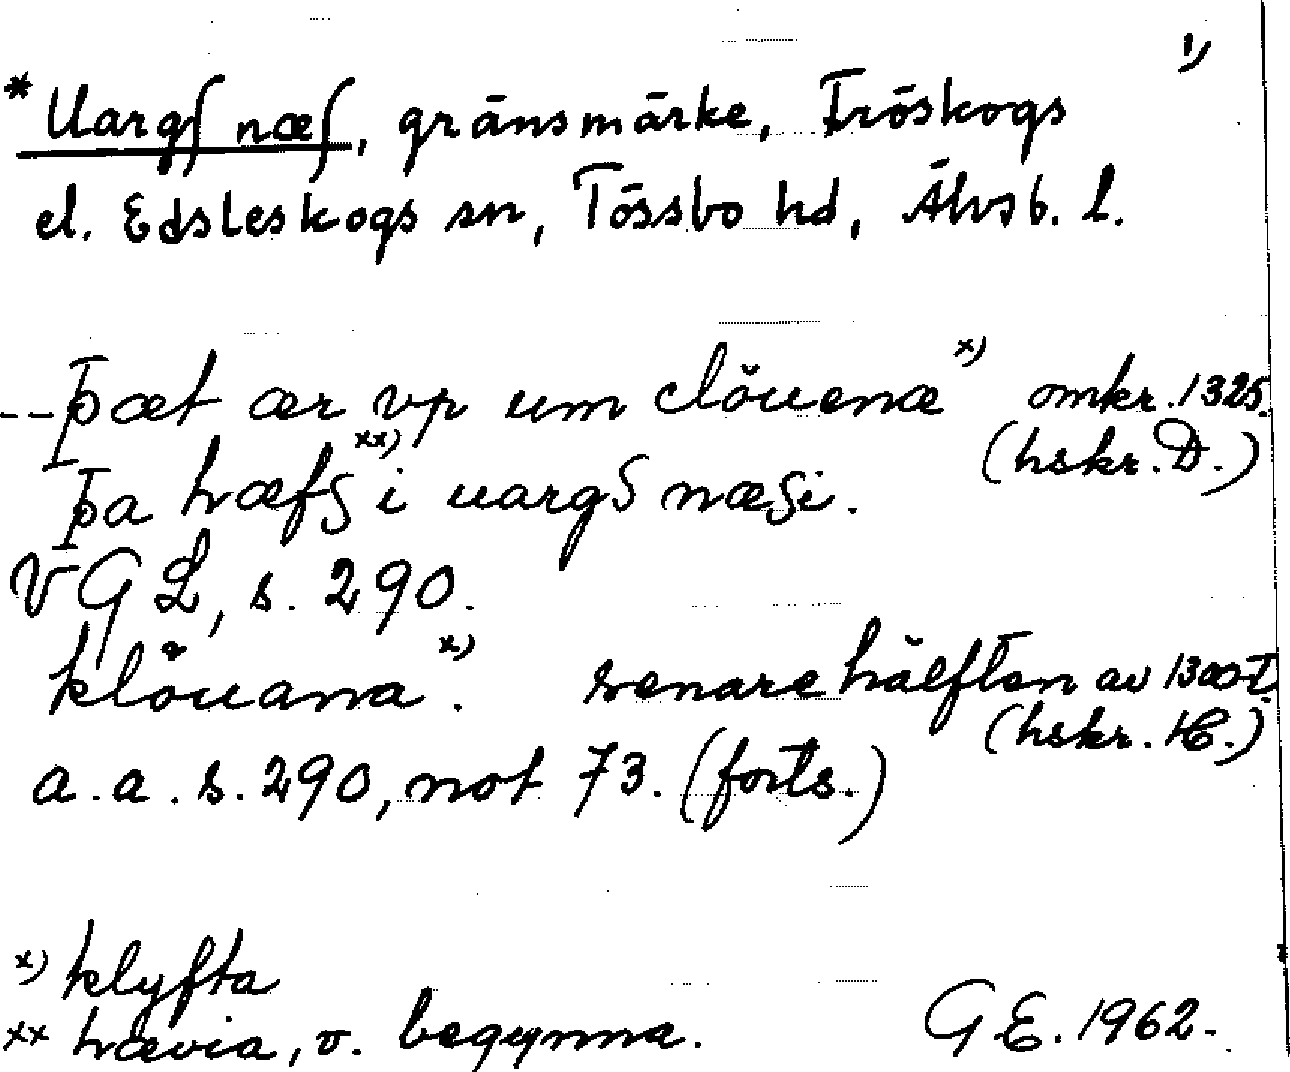 1)
* Uargſ næſ, gränsmärke, Fröskogs
el. Edsleskogs sn, Tössbo hd, Älvsb. l.
--þæt ær vp um clöuenæ x) omkr. 1325.
(hskr. D.)
þa hæfs xx) i uargs næsi.
VGL, s. 290.
klöuana x). senare hälften av 1300-t.
(hskr. H.)
a.a. s. 290, not 73. (forts.)
x) klyfta
xx hævia, v. begynna. G E. 1962.